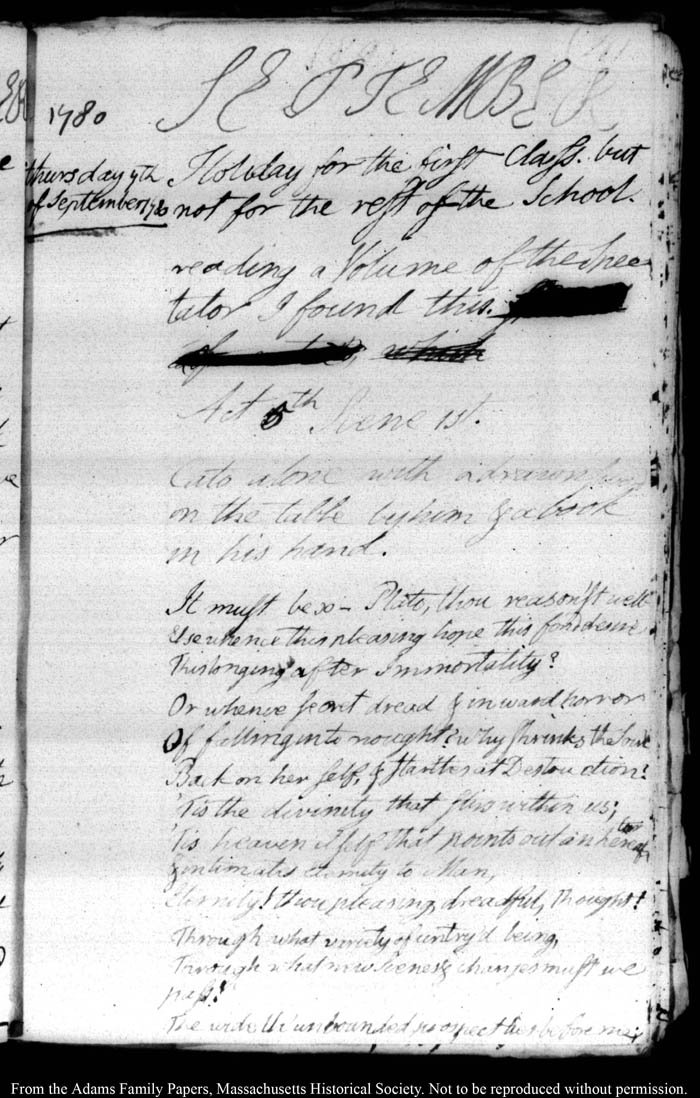 SEPTEMBER
1780
thursday 7th
of September 1780
Holiday for the first Class. but
not for the rest of the School.
reading a Volume of the Spec
tator I found this.
which
Act 5th Scene 1st.
Cato alone with a drawn
on the table by him & a book
in his hand.
It must be so – Plato, thou reason'st well
Else whence this pleasing hope this fond desire
This longing after Immortality?
Or whence secret dread & inward horror
Of falling into nought? why shrinks the soul
Back on her self, & startles at Destruction?
'Tis the divinity that stirs within us;
'Tis heaven itself that points out an hereafter
& intimates eternity to Man,
Eternity! thou pleasing, dreadful, Thought!
Through what variety of untry'd being,
Through what new scenes & changes must we
pass!
The wide th' unbounded prospect lies before me;
From the Adams Family Papers, Massachusetts Historical Society. Not to be reproduced without permission.